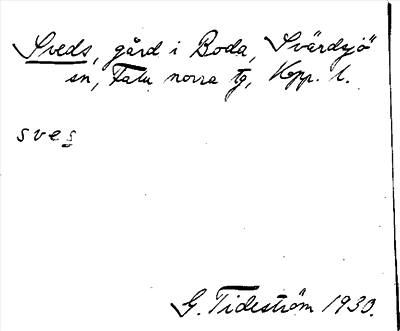 Sveds, gård i Boda, Svärdsjö
sn, Falu norra tg, Kopp. l.
sves
G. Tideström 1930.